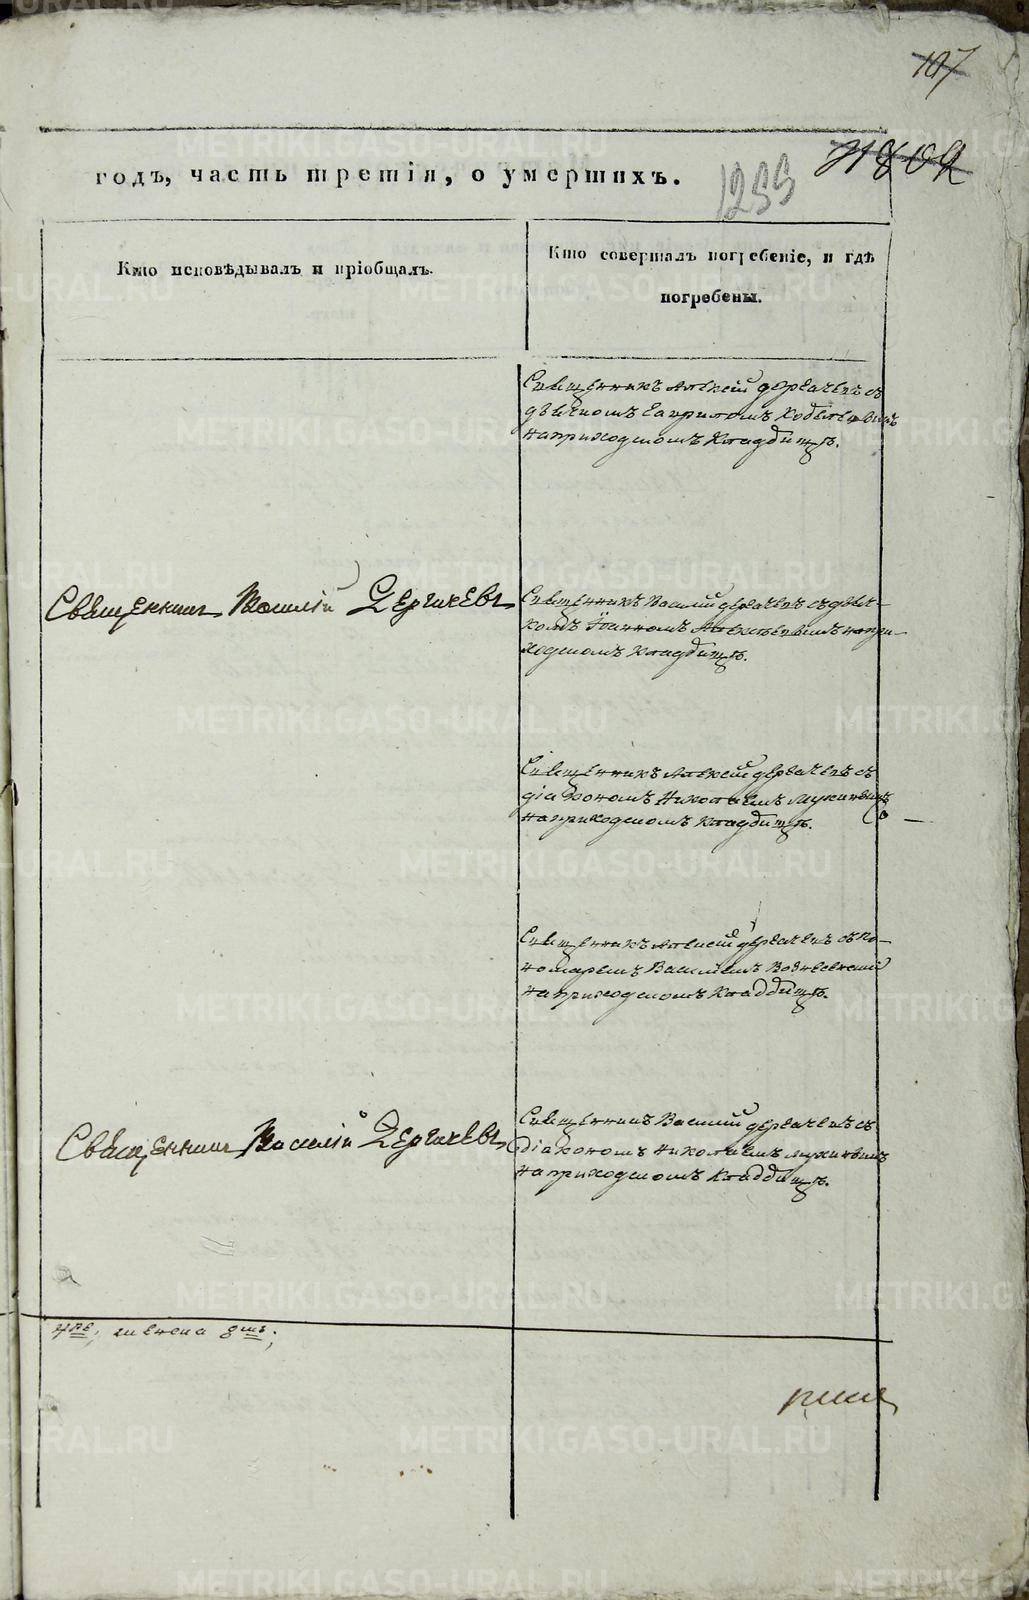 107
годъ, часть третія, о умершихъ.
1255
Кто исповѣдывалъ и пріобщалъ.
Кто совершалъ погребеніе, и гдѣ
погребены.
Священникъ Алексій Дергачевъ съ
дьячкомъ Гавриломъ
на приходскомъ кладбищѣ.
Священникъ Василій Дергачевъ
Священникъ Василій Дергачевъ съ дьяч-
комъ Іоанномъ Алексѣевымъ на при-
ходскомъ кладбищѣ.
Священникъ Алексій Дергачевъ съ
діакономъ Николаемъ
на приходскомъ кладбищѣ.
Священникъ Алексій Дергачевъ съ по-
номаремъ Василіемъ
на приходскомъ кладбищѣ.
Священникъ Василій Дергачевъ
Священникъ Василій Дергачевъ съ
діакономъ Николаемъ
на приходскомъ кладбищѣ.
METRIKI.GASO-URAL.RU